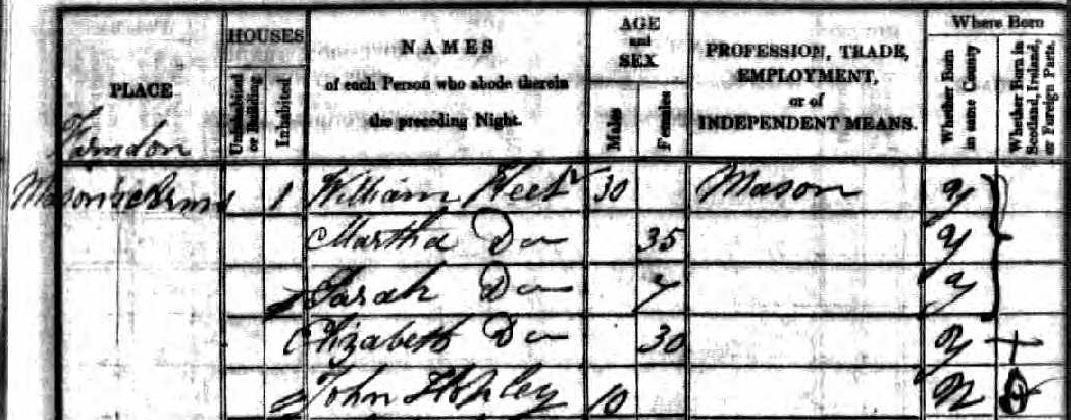 PLACE
Farndon
HOUSES
Uninhabited or Building
Inhabited
NAMES
of each Person who abode therein
the preceding Night.
AGE
and
SEX
Males
Females
PROFESSION, TRADE,
EMPLOYMENT,
or of
INDEPENDENT MEANS.
Where Born
Whether Born in same County
Whether Born in Scotland, Ireland, or Foreign Parts.
Mason's Arms 1 William 30 Mason y
Martha Do 35 y
Sarah Do 7 y
Elizabeth Do 30 y
John Hopley 10 N